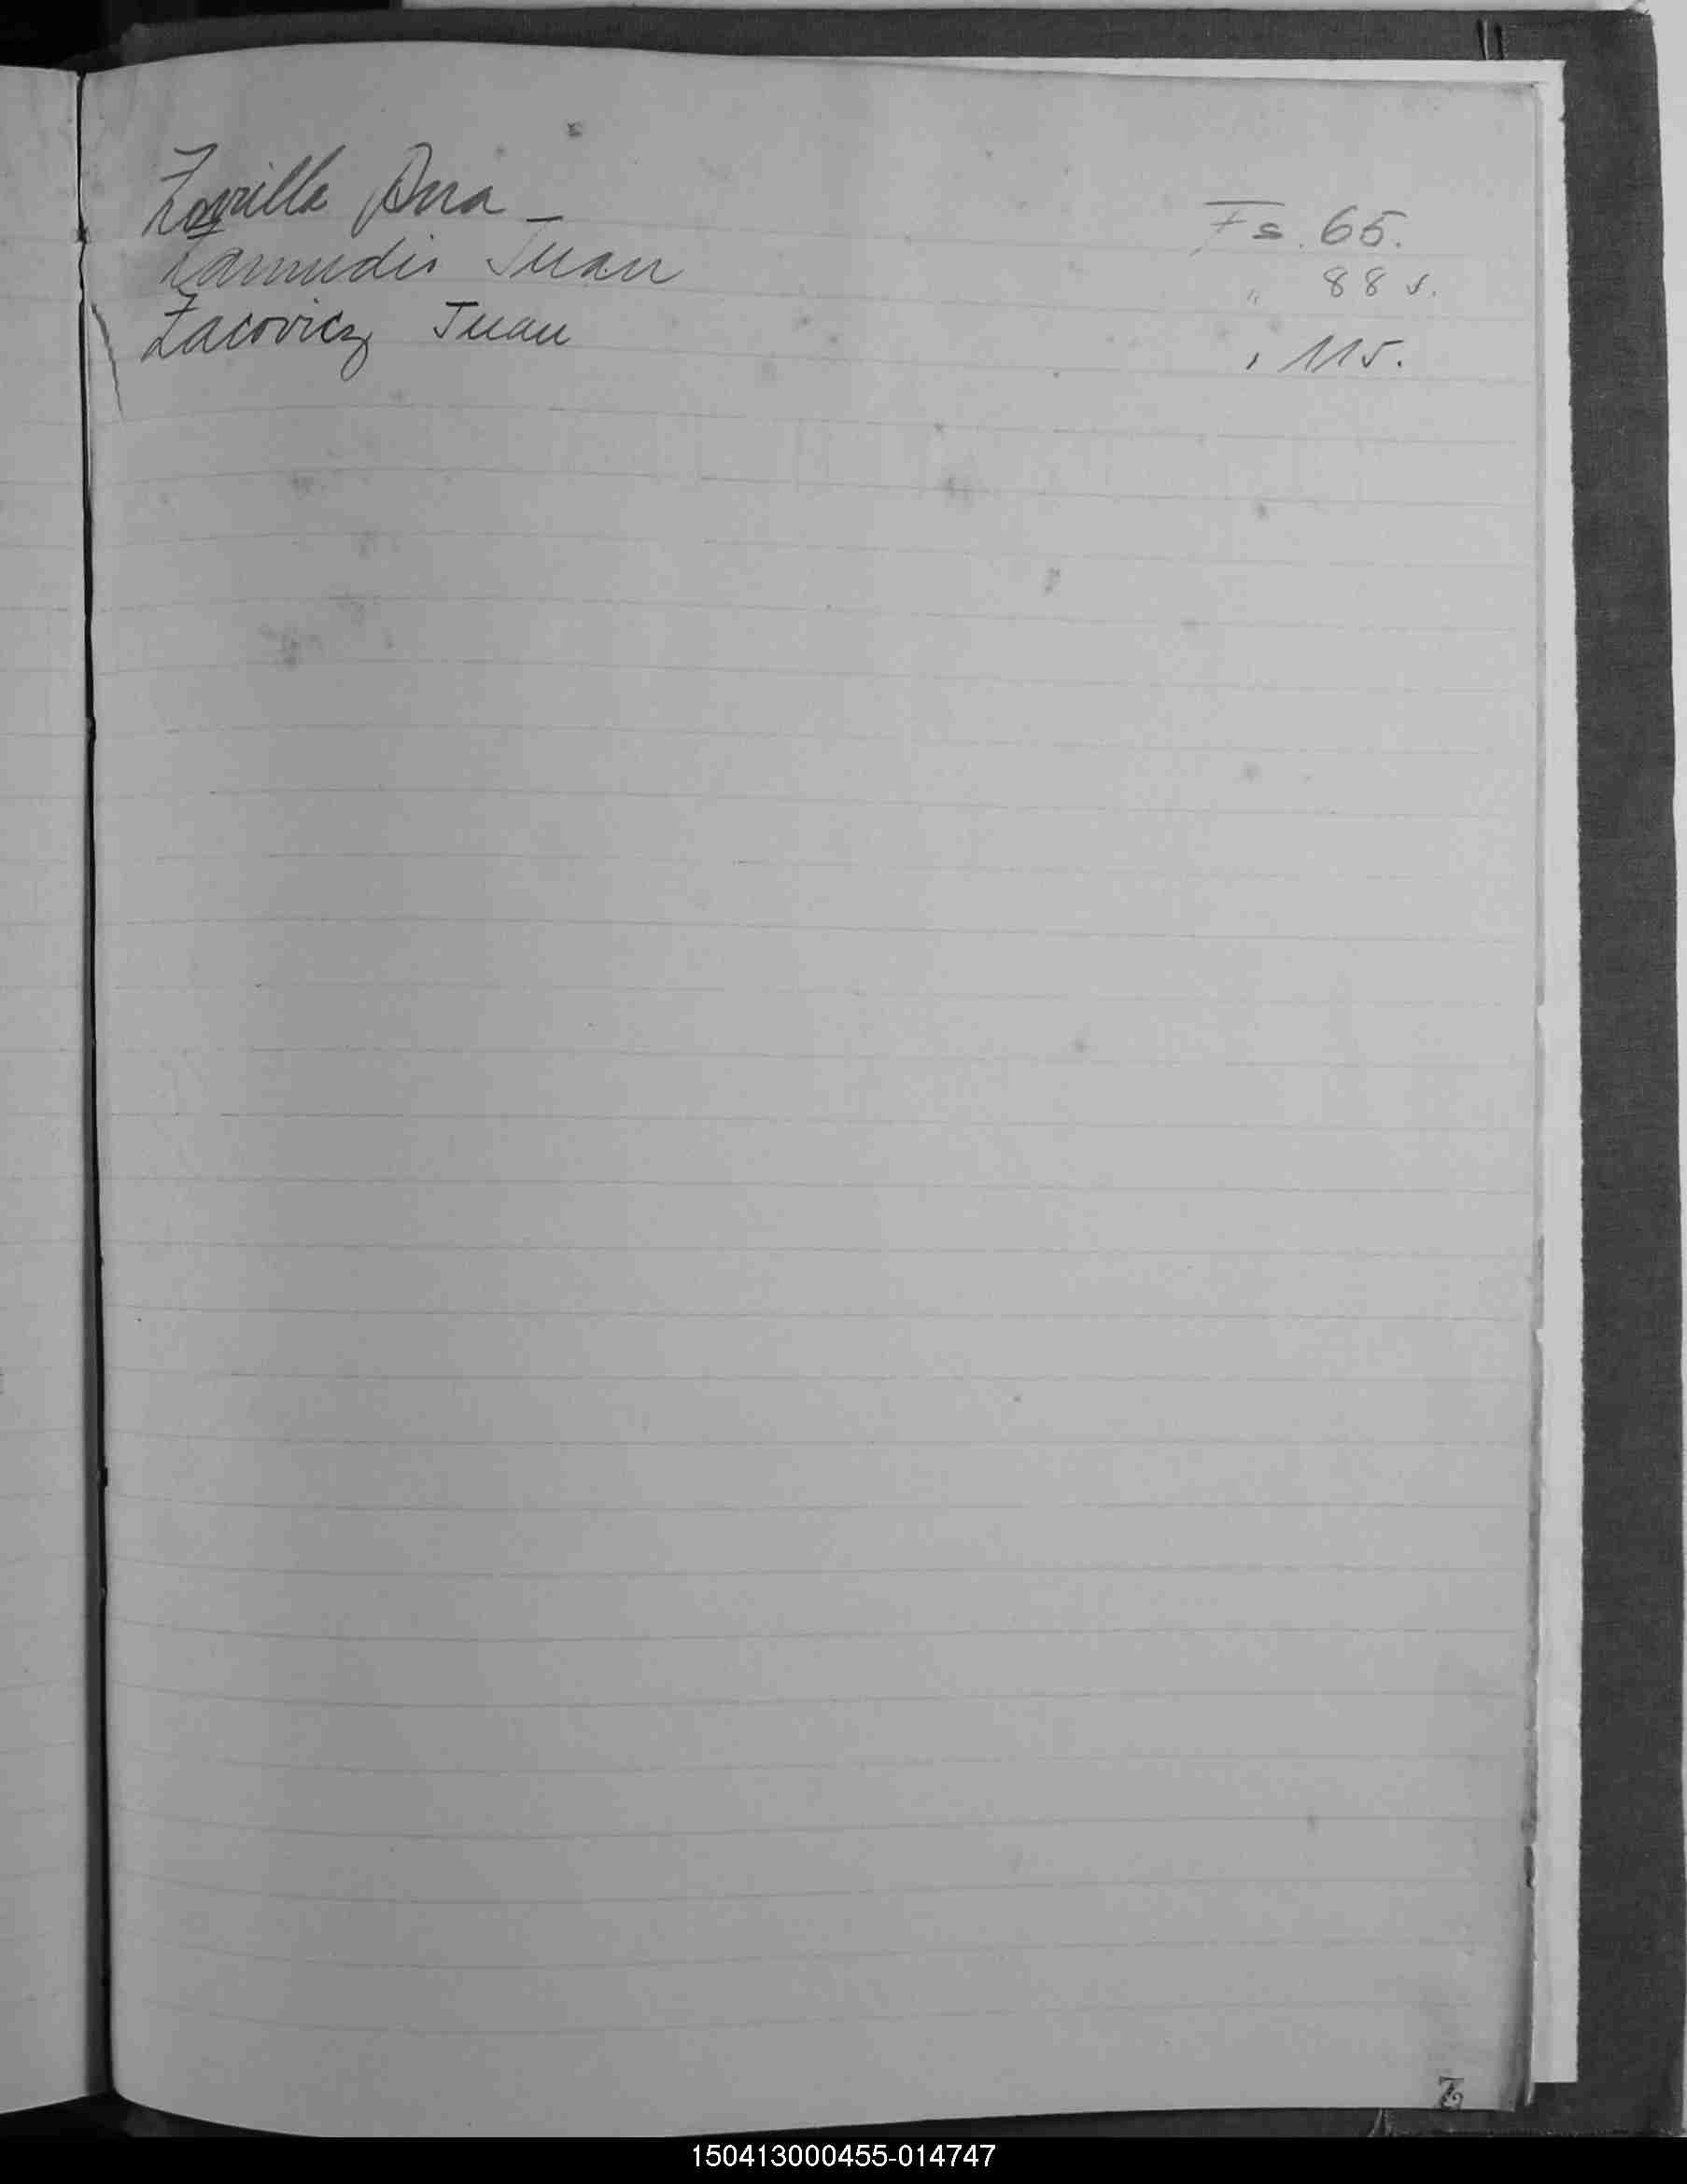 Zorrilla Ana - Fs. 65.
Zamudis Juan " 88 v.
Zacovicz Juan " 115.
Z
150413000455-014747